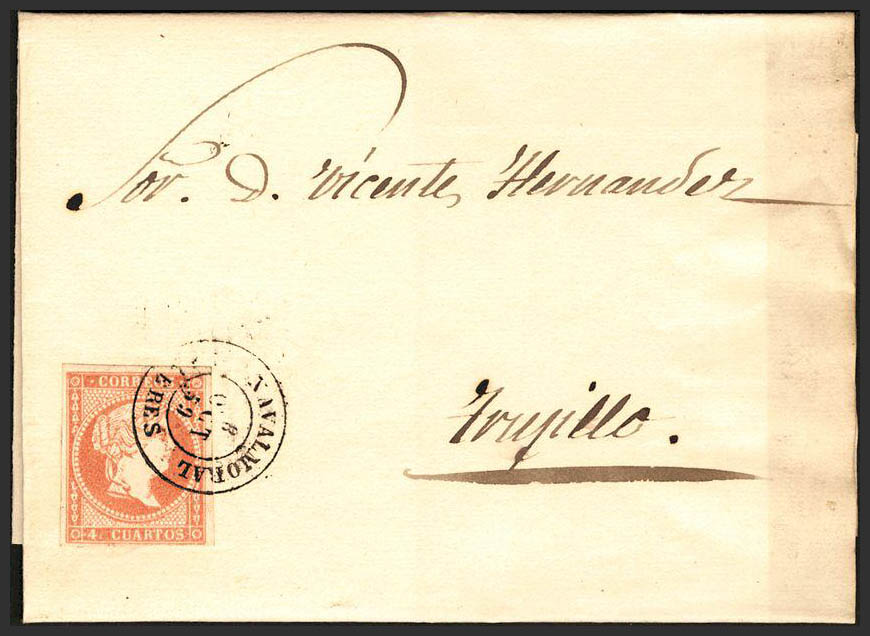 Sor. D. Vicente Hernandez
Trujillo.
CORREOS
4. CUARTOS.
NAVALMORAL
8
OCT
59